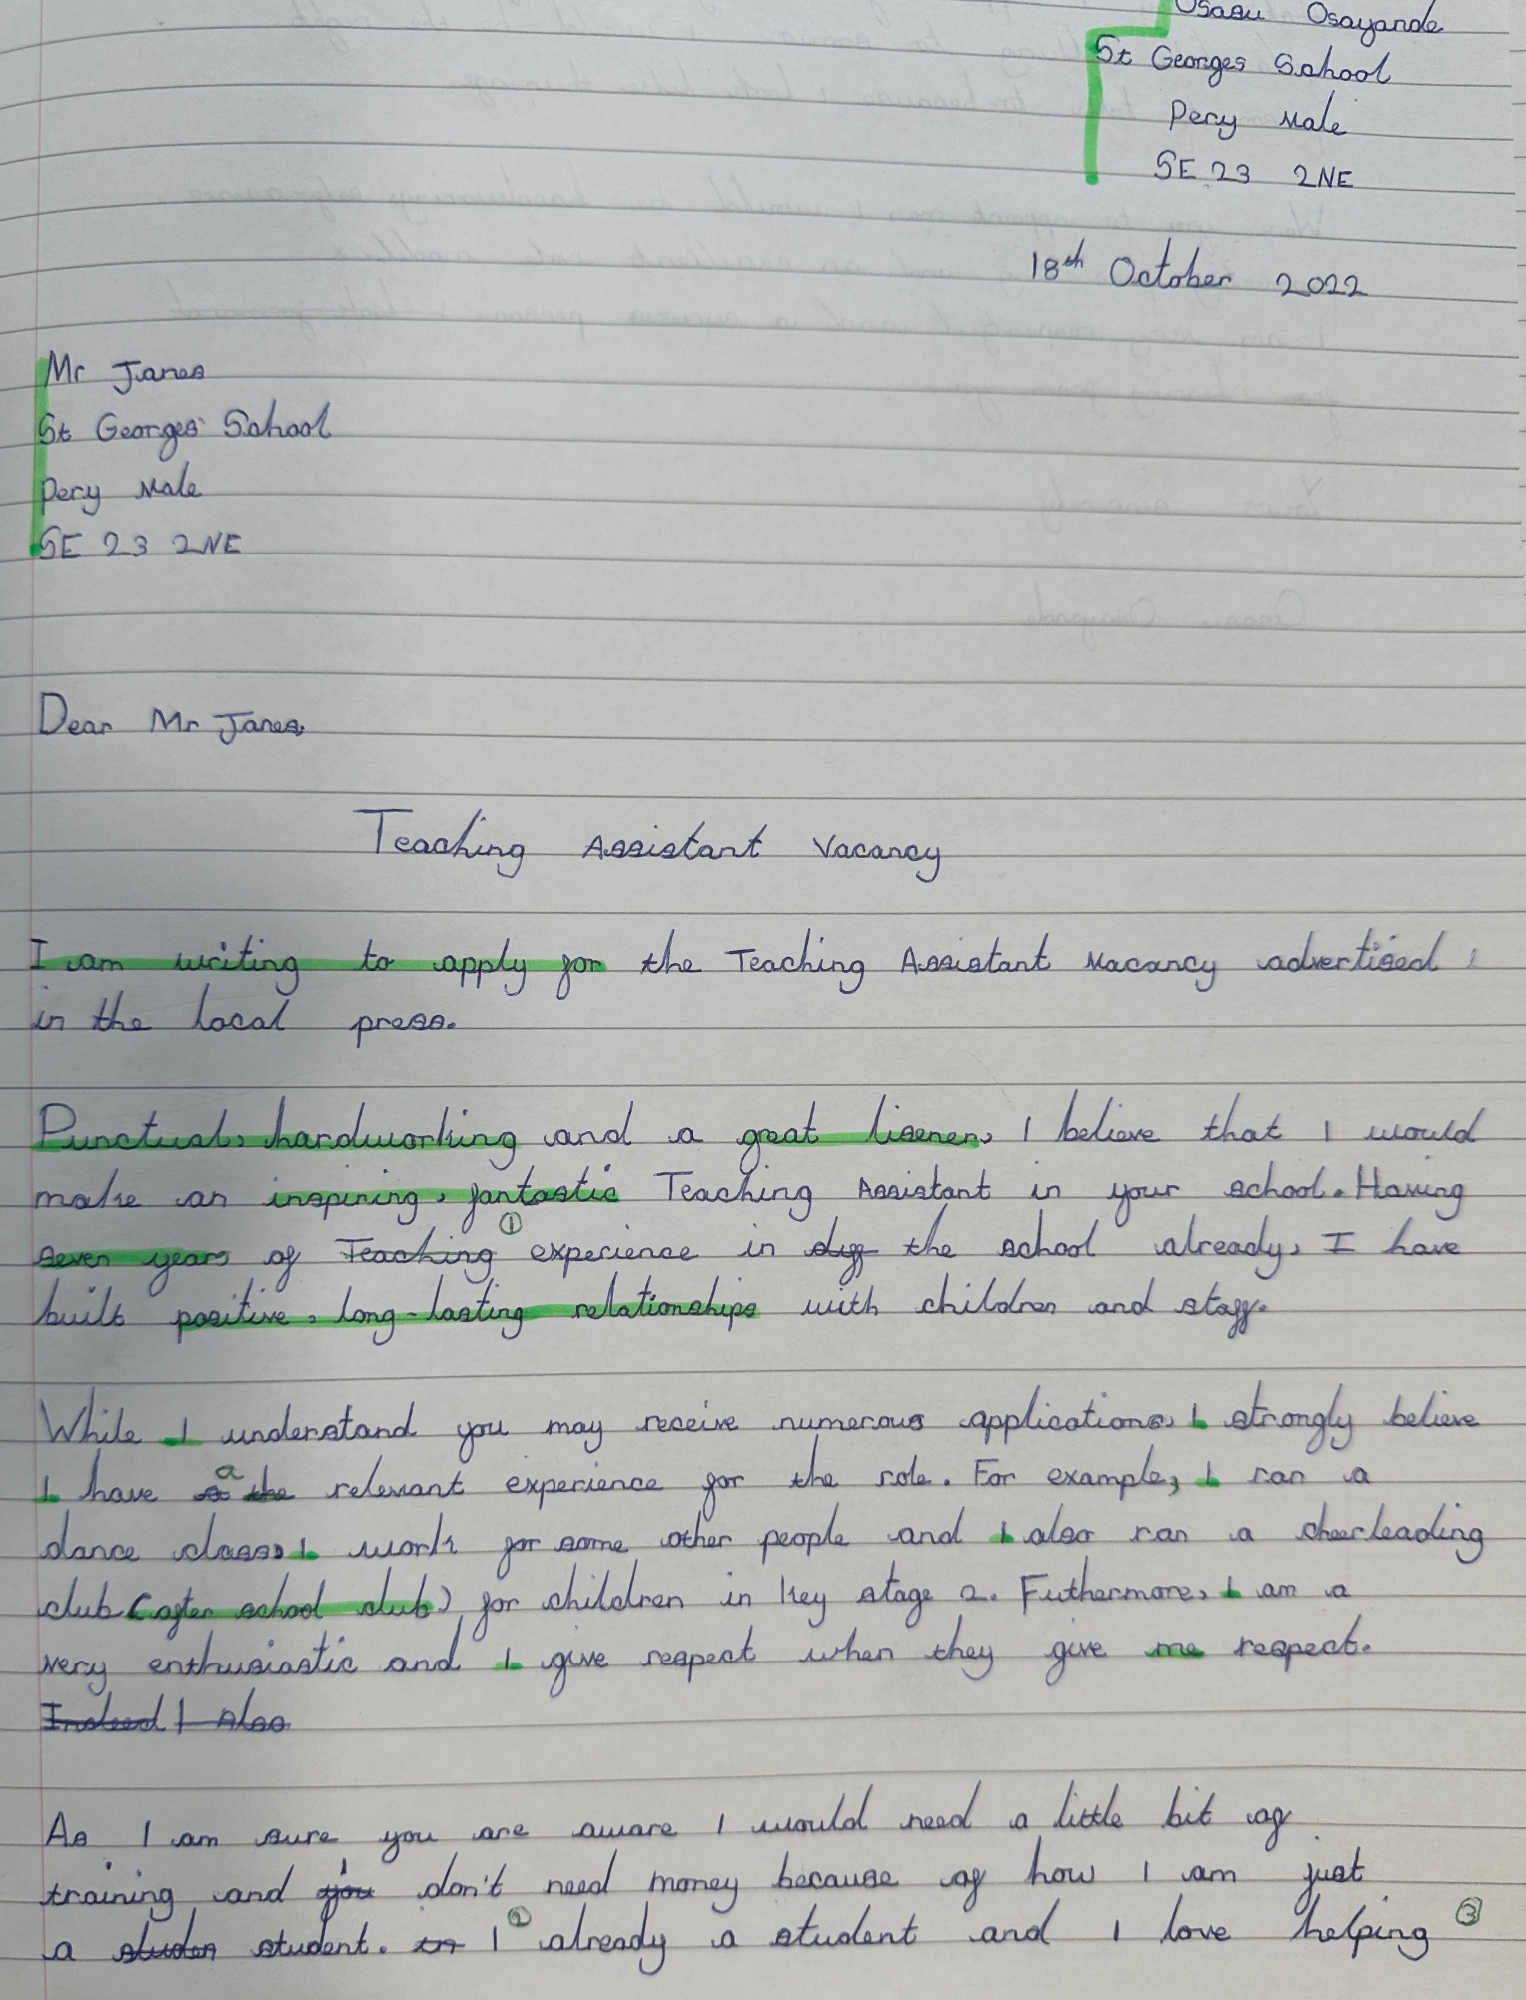 Osasu Osayande
St Georges School
Pery Vale
SE 23 2NE
18th October 2022
Mr Janes
St Georges School
Pery Vale
SE 23 2NE
Dear Mr Janes,
Teaching Assistant Vacancy
I am writing to apply for the Teaching Assistant Vacancy advertised
in the local press.
Punctual, hardworking and a great lisener, I believe that I would
make an inspiring, fantastic Teaching Assistant in your school. Having
①
seven years of Teaching experience in the school already, I have
built positive, long-lasting relationships with children and staff.
While I understand you may receive numerous applications, I strongly believe
I have a the relevant experience for the role. For example, I ran a
dance class, I work for some other people and I also ran a cheerleading
club (after school club) for children in key stage 2. Futhermore, I am a
very enthusiastic and I give respect when they give me respect.
Indeed I Also
As I am sure you are aware I would need a little bit of
training and you I don't need money because of how I am just
a studen student. I ② already a student and I love helping ③